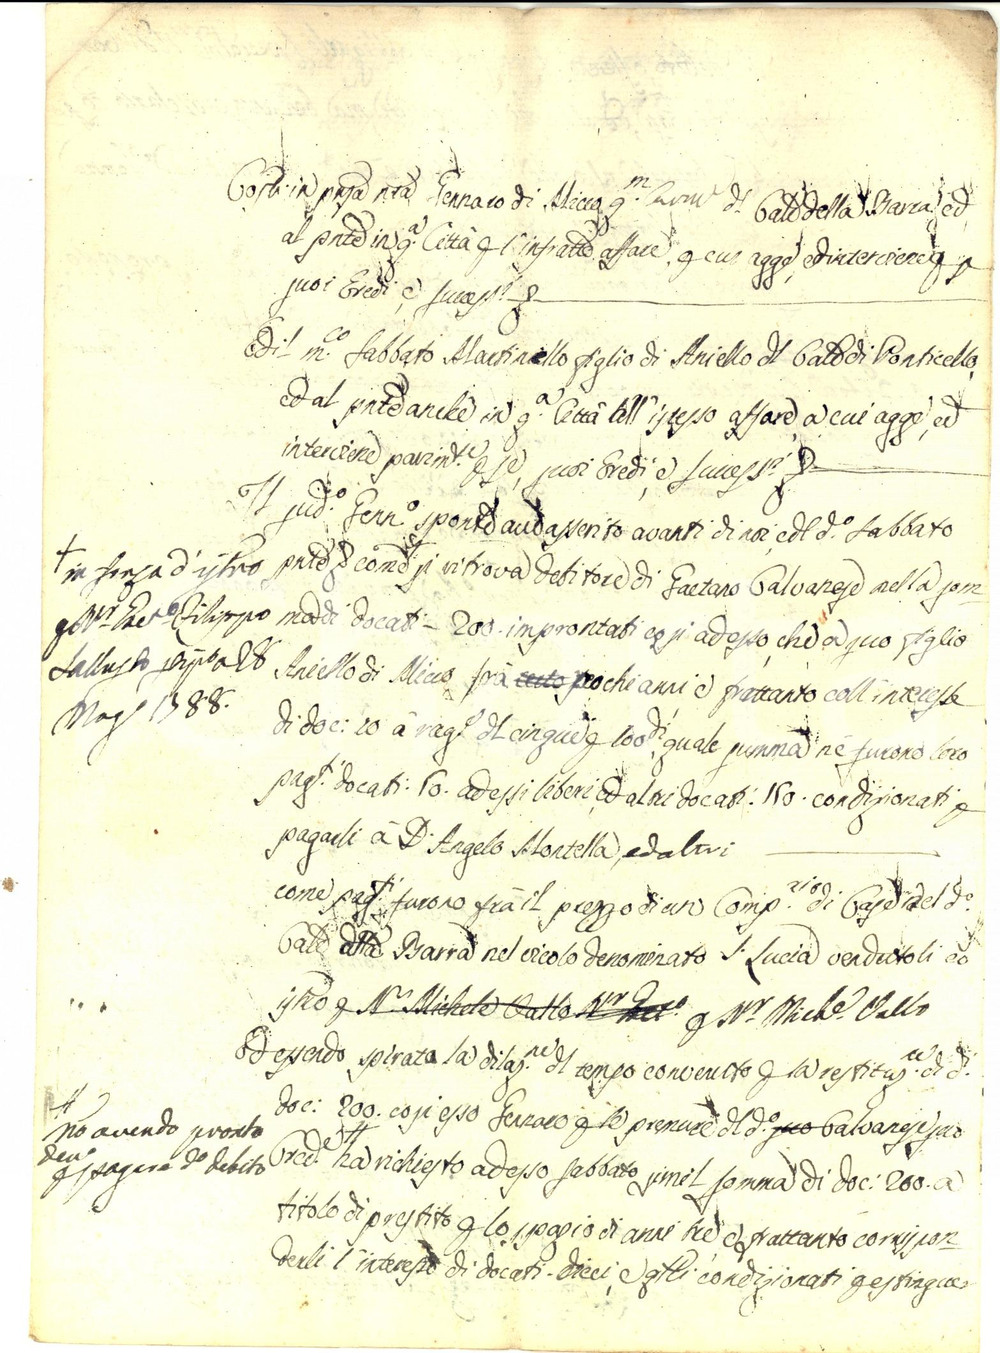 in pnza nra Gennaro di Micco q.m d. Cale della Barra, ed
al pnte in q.a Città p l'infratto affare, p cui agge, ed interviene p
suoi Eredi, e success.ri
Ed il m.co Sabbato Martiniello figlio di Aniello del Cale di Ponticello,
ed al pnte anche in q.a Città l'istesso affare, a cui agge, ed
interviene parim.te p se, suoi Eredi, e success.ri
Il sud.o Genn.o sponte have asserito avanti di noi, e del d.o Sabbato
pnte come si ritrova debitore di Gaetano Calvanese nella som-
ma di docati = 200. improntati così ad esso, che a suo figlio
Aniello di Micco fra pochi anni e frattanto coll'interesse
di doc: 10 à rag.e del cinque p 100, di quale summa ne furono loro
pag.ti docati: 50. ad essi liberi, ed altri docati: 150. condizionati p
pagarli à D. Angelo Montella, ed altri
come pag.ti furono fra il prezzo di un Comp.rio di Case del d.o
Cale della Barra nel vicolo denominato S. Lucia vendutoli
istro p N.r Michele Vallo N.r p N.r Mich.e Vallo
Ed essendo spirata la dilaz.ne del tempo convenuto p la restituz.ne di d.i
doc: 200. così esso Gennaro p le premure del d.o suo Calvanese suo
Cred.e # ha richiesto ad esso Sabbato simil somma di doc: 200. a
titolo di prestito p lo spazio di anni tre e frattanto corrispon-
derli l'interesse di docati dieci, e q.sti condizionati p estingue
† in forza d'istro
p N.r Gaet.o Filippo
Sallusto 28
Mag.o 1788.
# no avendo pronto
den.o
p pagare d.o debito